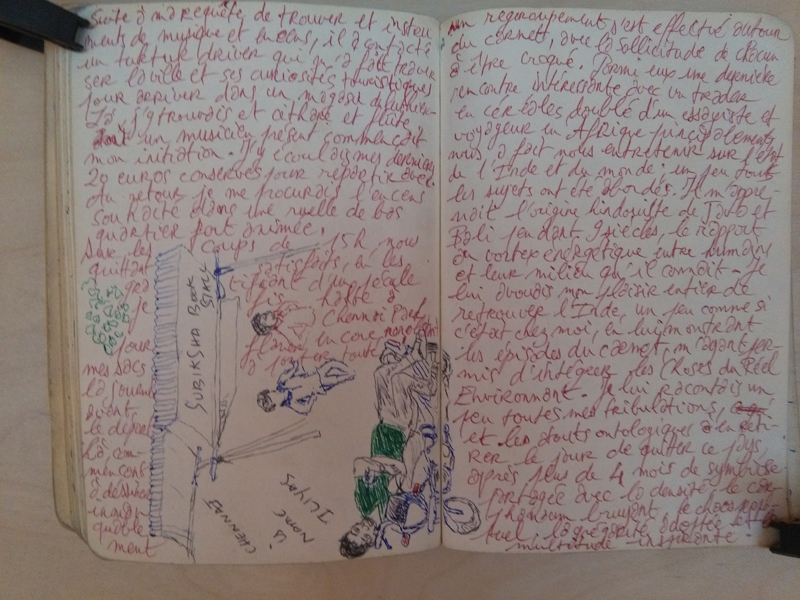 Suite à ma requête de trouver et instru
ments de musique et encens, il a contacté
un tuktuk driver qui m'a fait traver
ser la ville et ses curiosités touristiques
pour arriver dans un magasin
Là, j'y trouvais et cithare et flûte
dont un musicien présent commençait
mon initiation. J'y écoulais mes derniers
20 euros conservés pour repartir avec.
Au retour je me procurais l'encens
souhaité dans une ruelle de bas
quartier fort animée.
Sur les coups de 15h, nous
quittant satisfaits, en les
d'un
je fis halte à
Chennai Park
pour
mes sacs
le départ
là, com-
mençons
à dessiner
inman-
quable
ment
SUBIKSHA BOOK
STALL
CHENNAI
is
NAME
ILIYAS
un regroupement s'est effectué autour
du carnet, avec la sollicitude de chacun
à être croqué. Parmi eux une dernière
rencontre intéressante avec un trader
en céréales doublé d'un essayiste et
voyageur en Afrique principalement,
mais a fait nous entretenir sur l'état
de l'Inde et du monde : un peu tous
les sujets ont été abordés. Il m'appre-
nait l'origine hindouiste de Java et
Bali pendant 9 siècles, le rapport
du vortex énergétique entre humains
et leur milieu qu'il connaît. Je
lui avouais mon plaisir entier de
retrouver l'Inde, un peu comme si
c'était chez moi, en lui montrant
les épisodes du carnet, m'ayant per-
mis d'intégrer les Choses du Réel
Environnant. Je lui racontais un
peu toutes mes tribulations,
et les atouts ontologiques à en reti-
rer le jour de quitter ce pays,
après plus de 4 mois de symbiose
partagée avec la densité, le ca-
pharnaüm bruyant, le chaos perpé-
tuel, la grégarité adoptée et la
multitude inspirante.